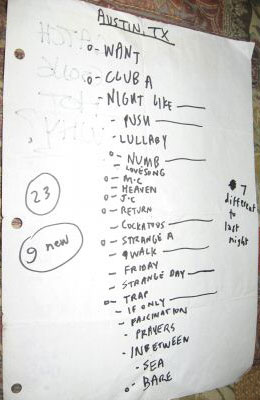 AUSTIN, TX
WANT
CLUB A
NIGHT LIKE
PUSH
LULLABY
NUMB
LOVESONG
M.C
HEAVEN
J.C
RETURN
COCKATOUS
STRANGE A
WALK
FRIDAY
STRANGE DAY
TRAP
IF ONLY
FASCINATION
PRAYERS
INBETWEEN
SEA
BARE
23
9 new
7
different
to
last
night